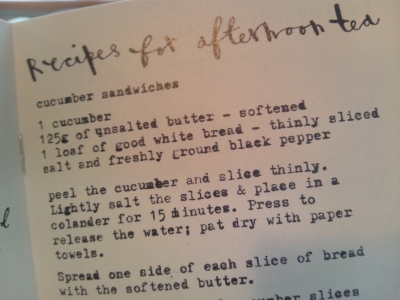 Recipes for afternoon tea
cucumber sandwiches
1 cucumber
125g of unsalted butter - softened
1 loaf of good white bread - thinly sliced
salt and freshly ground black pepper
peel the cucumber and slice thinly.
Lightly salt the slices & place in a
colander for 15 minutes. Press to
release the water; pat dry with paper
towels.
Spread one side of each slice of bread
with the softened butter.
cucumber slices